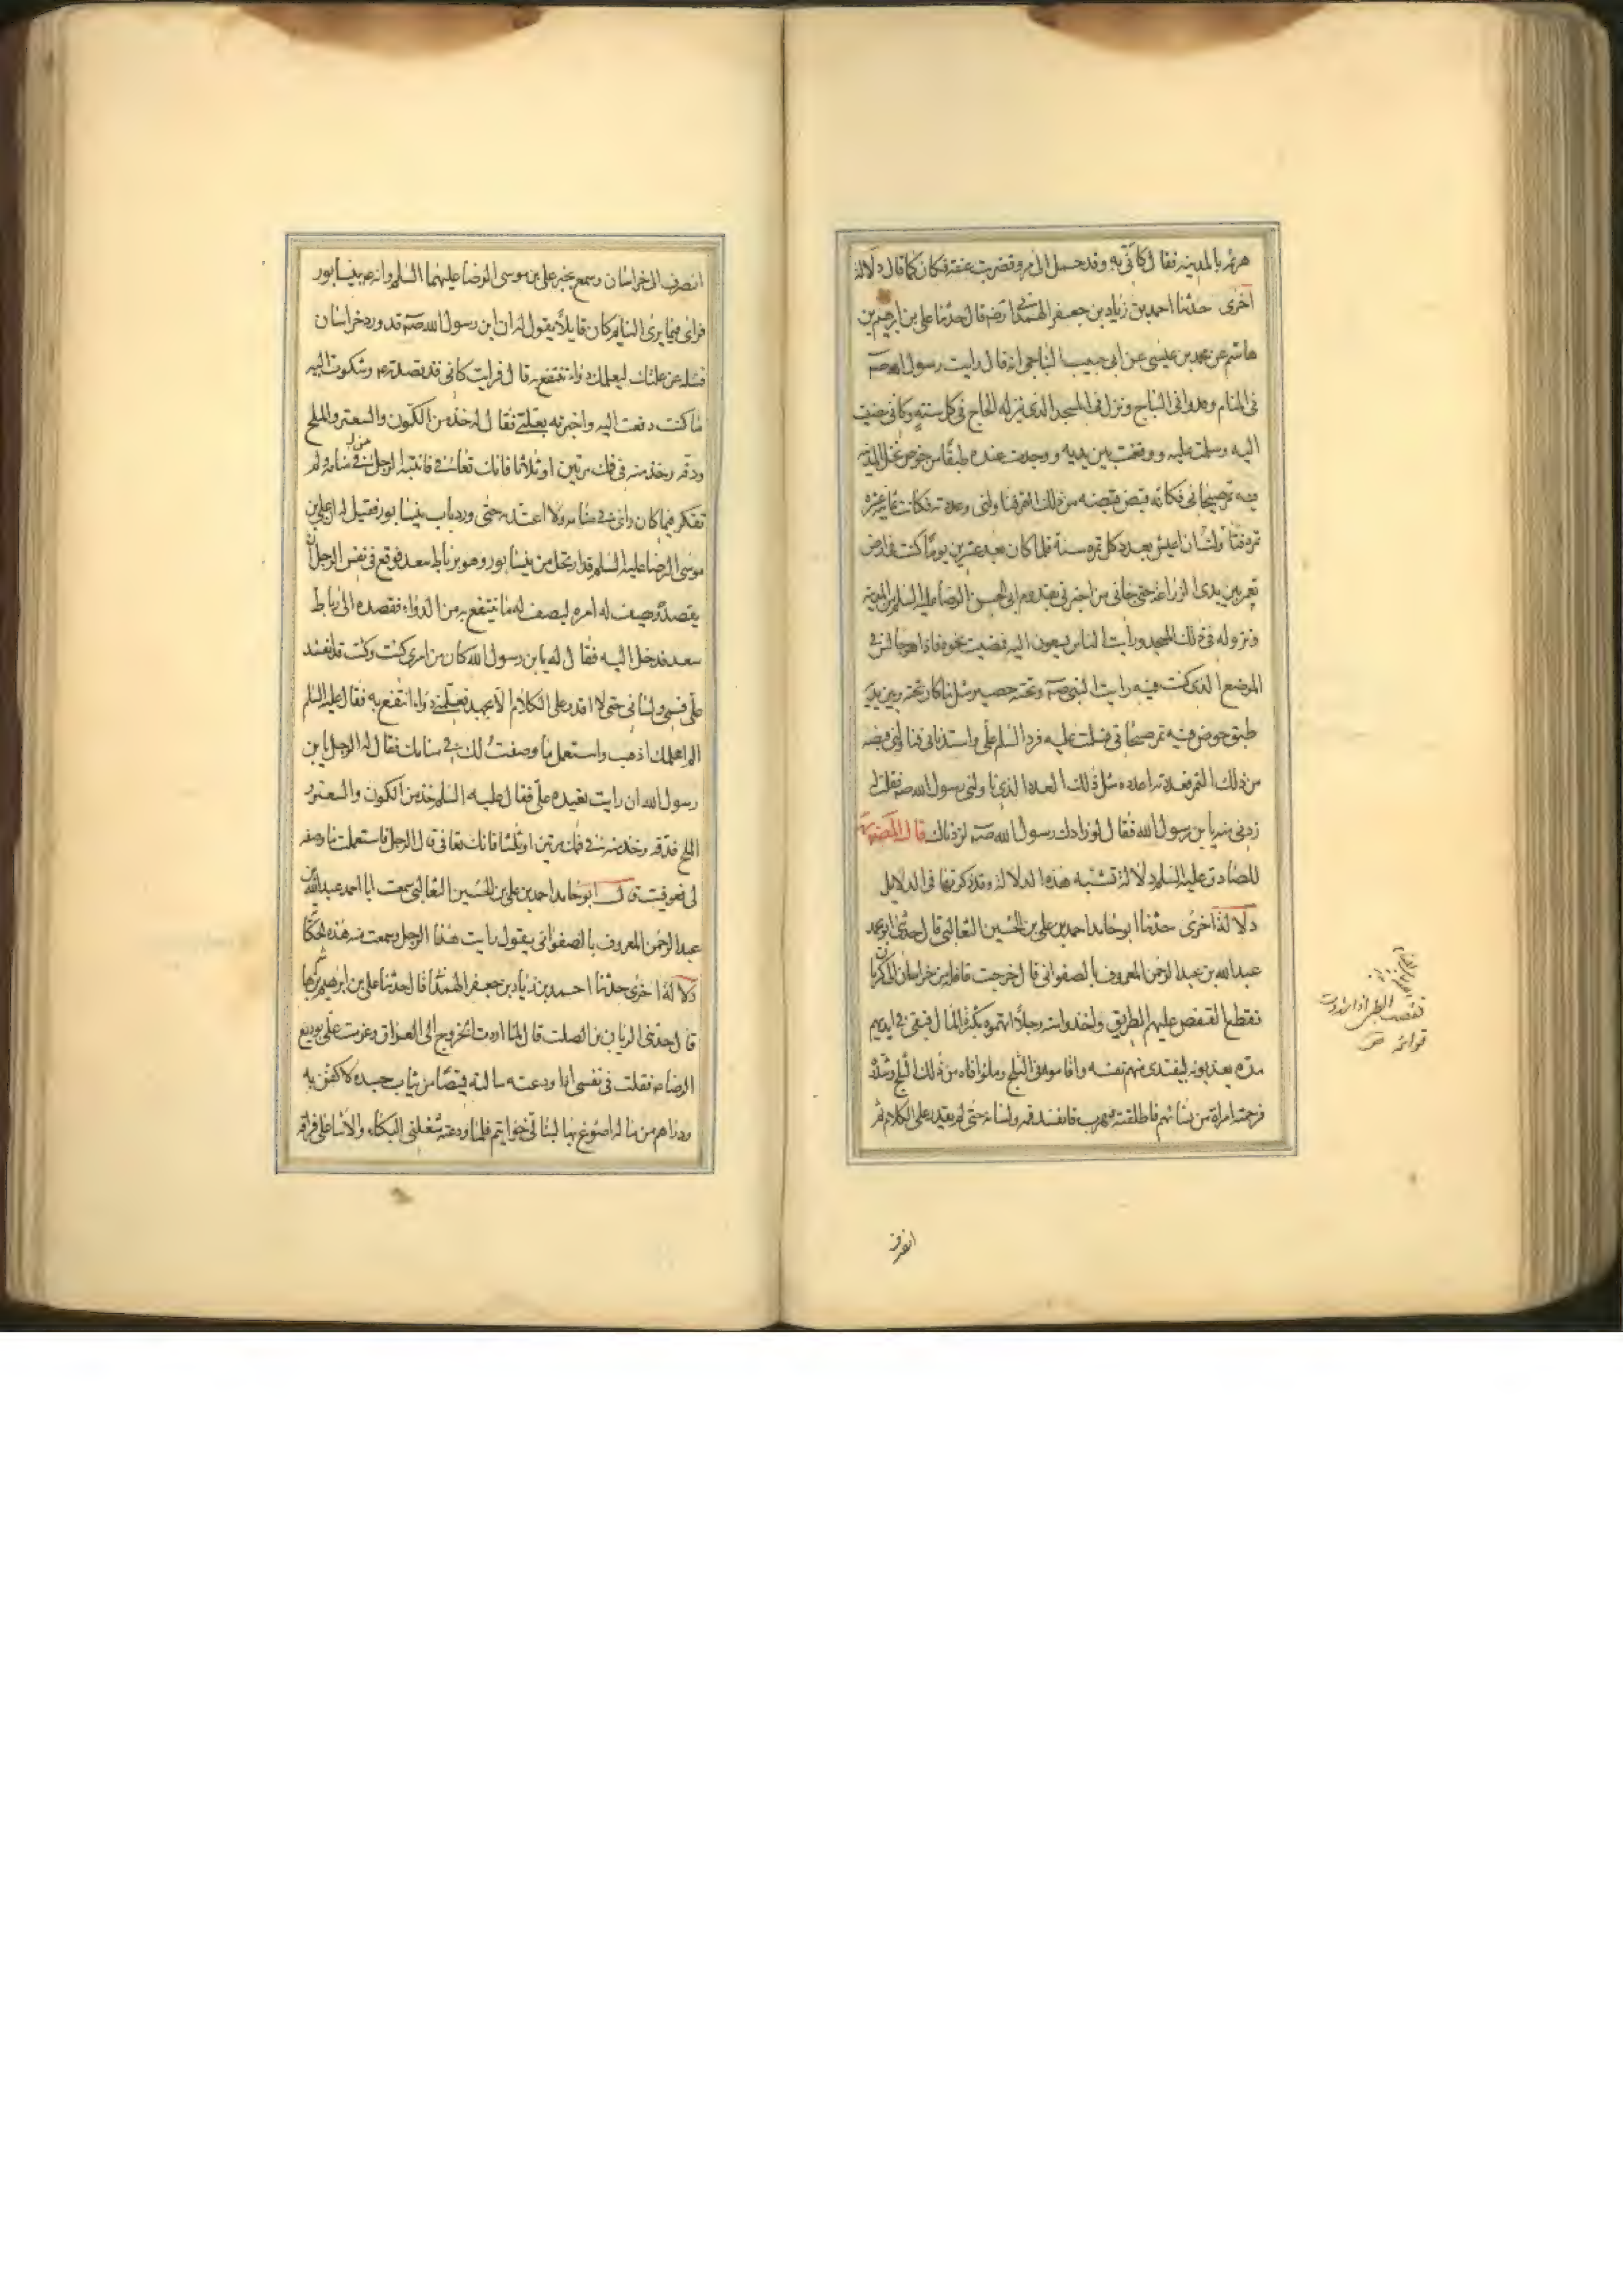 هرثمة بالمدينة فقال كاني به وقد حمل الى مرو فضربت عنقه فكان كما قال دلالة
اخرى حدثنا احمد بن زياد بن جعفر الهمداني رضه قال حدثنا علي بن ابرهيم بن
هاشم عن محمد بن عيسى عن ابي حبيب النباجي انه قال رايت رسول الله صه
في المنام وقد وافى النباج ونزل في المسجد الذي ينزله الحاج في كل سنة وكاني مضيت
اليه وسلمت عليه ووقفت بين يديه ووجدت عنده طبقا من خوص نخل المدينة
فيه تمر صيحاني فكانه قبض قبضة من ذلك التمر فناولني وعددته فكانت ثمانية عشرة
تمرة فتاولت ان اعيش بعدد كل تمرة سنة فلما كان بعد عشرين يوما كنت في ارض
تعمر بين يدي الزراعة حتى جاءني من اخبرني بقدوم ابي الحسن الرضا عليه السلم من المدينة
ونزوله في ذلك المسجد ورايت الناس يسعون اليه فمضيت نحوه فاذا هو جالس في
الموضع الذي كنت فيه رايت النبي صه وتحته حصير مثل ما كان تحته وبين يديه
طبق خوص فيه تمر صيحاني فسلمت عليه فرد السلم علي واستدناني فناولني قبضة
من ذلك التمر فعددته فاذا عدده مثل ذلك العدد الذي ناولني رسول الله صه فقلت له
زدني منه يا بن رسول الله فقال لو زادك رسول الله صه لزدناك قال المصنف
للصادق عليه السلم دلالة تشبه هذه الدلالة وقد ذكرتها في الدلايل
دلالة اخرى حدثنا ابو حامد احمد بن علي بن الحسين الثعالبي قال حدثني ابو احمد
عبد الله بن عبد الرحمن المعروف بالصفواني قال خرجت قافلة من خراسان الى كرمان
فقطع القفص عليهم الطريق واخذوا منه رجلا اتهموه بكثرة المال فبقي في ايديهم
مدة يعذبونه ليفتدي منهم نفسه واقاموه في الثلج وملئوا فاه من ذلك الثلج وشدوه
فرحمته امراة من نسائهم فاطلقته فهرب فانفسد فمه ولسانه حتى لم يقدر على الكلام ثم
انصرف
انصرف الى خراسان وسمع بخبر علي بن موسى الرضا عليهما السلم وانه بنيسابور
فراى فيما يرى النايم كان قايلا يقول له ان ابن رسول الله صه قد ورد خراسان
فسله عن علتك ليعلمك دواء تنتفع به قال فرايت كاني قد قصدته ع وشكوت اليه
ما كنت دفعت اليه واخبرته بعلتي فقال له خذ من الكمون والسعتر والملح
ودقه وخذ منه في فمك مرتين او ثلاثا فانك تعافى فانتبه الرجل من منامه ولم
تفكر فيما كان راى في منامه ولا اعتد به حتى ورد باب نيسابور فقيل له ان علي بن
موسى الرضا عليه السلم قد ارتحل من نيسابور وهو برباط سعد فوقع في نفس الرجل ان
يقصده ويصف له امره ليصف له ما ينتفع به من الدواء فقصده الى رباط
سعد فدخل اليه فقال له يا بن رسول الله كان من امري كيت وكيت وقد انفسد
علي فمي ولساني حتى لا اقدر على الكلام الا بجهد فعلمني دواء انتفع به فقال عليه السلم
الم اعلمك اذهب واستعمل ما وصفت لك في منامك فقال له الرجل يا بن
رسول الله ان رايت تعيده علي فقال عليه السلم خذ من الكمون والسعتر و
الملح فدقه وخذ منه في فمك مرتين او ثلثا فانك تعافى قال الرجل فاستعملت ما وصفه
لي فعوفيت قال ابو حامد احمد بن علي بن الحسين الثعالبي سمعت ابا احمد عبد الله بن
عبد الرحمن المعروف بالصفواني يقول رايت هذا الرجل وسمعت منه هذه الحكاية
دلالة اخرى حدثنا احمد بن زياد بن جعفر الهمداني قال حدثنا علي بن ابرهيم بن هاشم
قال حدثني الريان بن الصلت قال لما اردت الخروج الى العراق وعزمت على توديع
الرضا ع فقلت في نفسي اذا ودعته سالته قميصا من ثياب جسده لاكفن به
ودراهم من ماله اصوغ بها لبناتي خواتيم فلما ودعته شغلني البكاء والاسا على فراقه